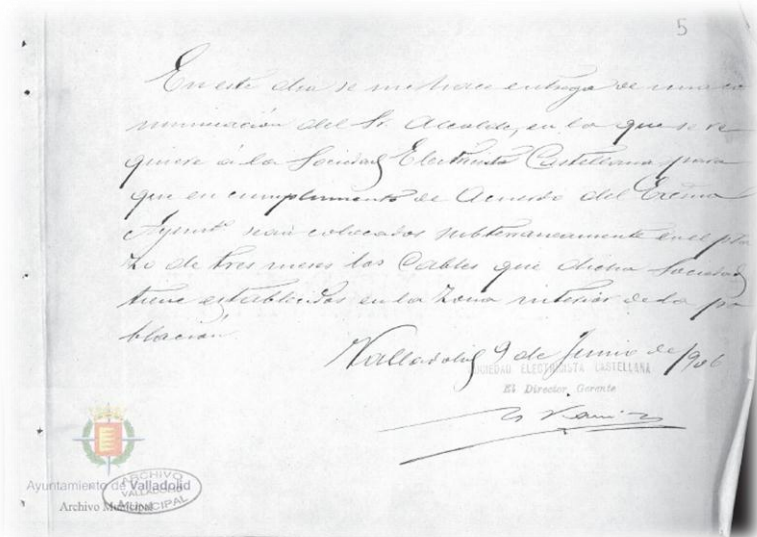 5
En este dia se me hace entrega de una co
municación del Sr. Alcalde, en la que se re
quiere á la Sociedad Electricista Castellana para
que en cumplimiento de Acuerdo del Excmo
Ayuntº sean colocados subterraneamente en el pla
zo de tres meses los Cables que dicha Sociedad
tiene establecidos en la Zona interior de la po
blación.
Valladolid 9 de Junio de 1906
SOCIEDAD ELECTRICISTA CASTELLANA
El Director Gerente
Ayuntamiento de Valladolid
Archivo Municipal
ARCHIVO
VALLADOLID
MUNICIPAL